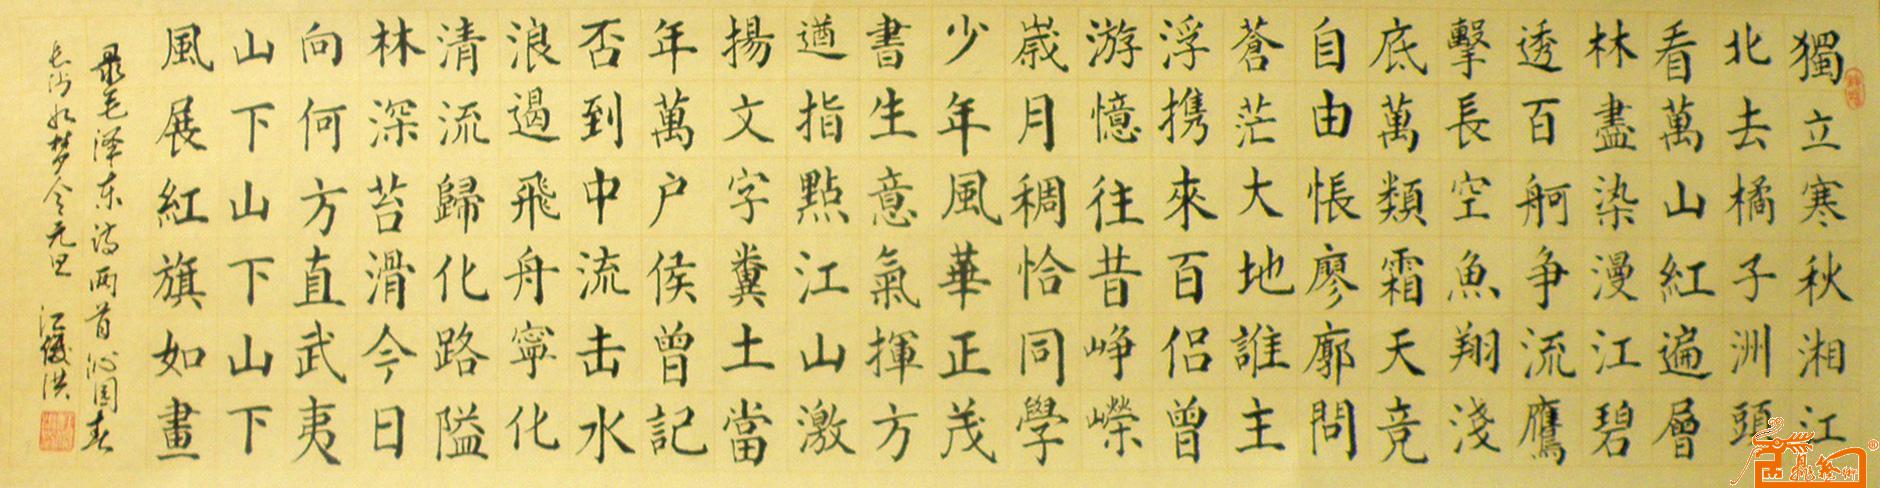 獨立寒秋湘江
北去橘子洲頭
看萬山紅遍層
林盡染漫江碧
透百舸争流鷹
擊長空魚翔淺
底萬類霜天竞
自由悵廖廓問
蒼茫大地誰主
浮携來百侣曾
游憶往昔峥嶸
歲月稠恰同學
少年風華正茂
書生意氣揮方
遒指點江山激
揚文字糞土當
年萬户侯曾記
否到中流击水
浪遏飛舟寧化
清流歸化路隘
林深苔滑今日
向何方直武夷
山下山下山下
風展紅旗如畫
录毛泽东诗两首沁园春
长沙如梦令元旦 江儀洪